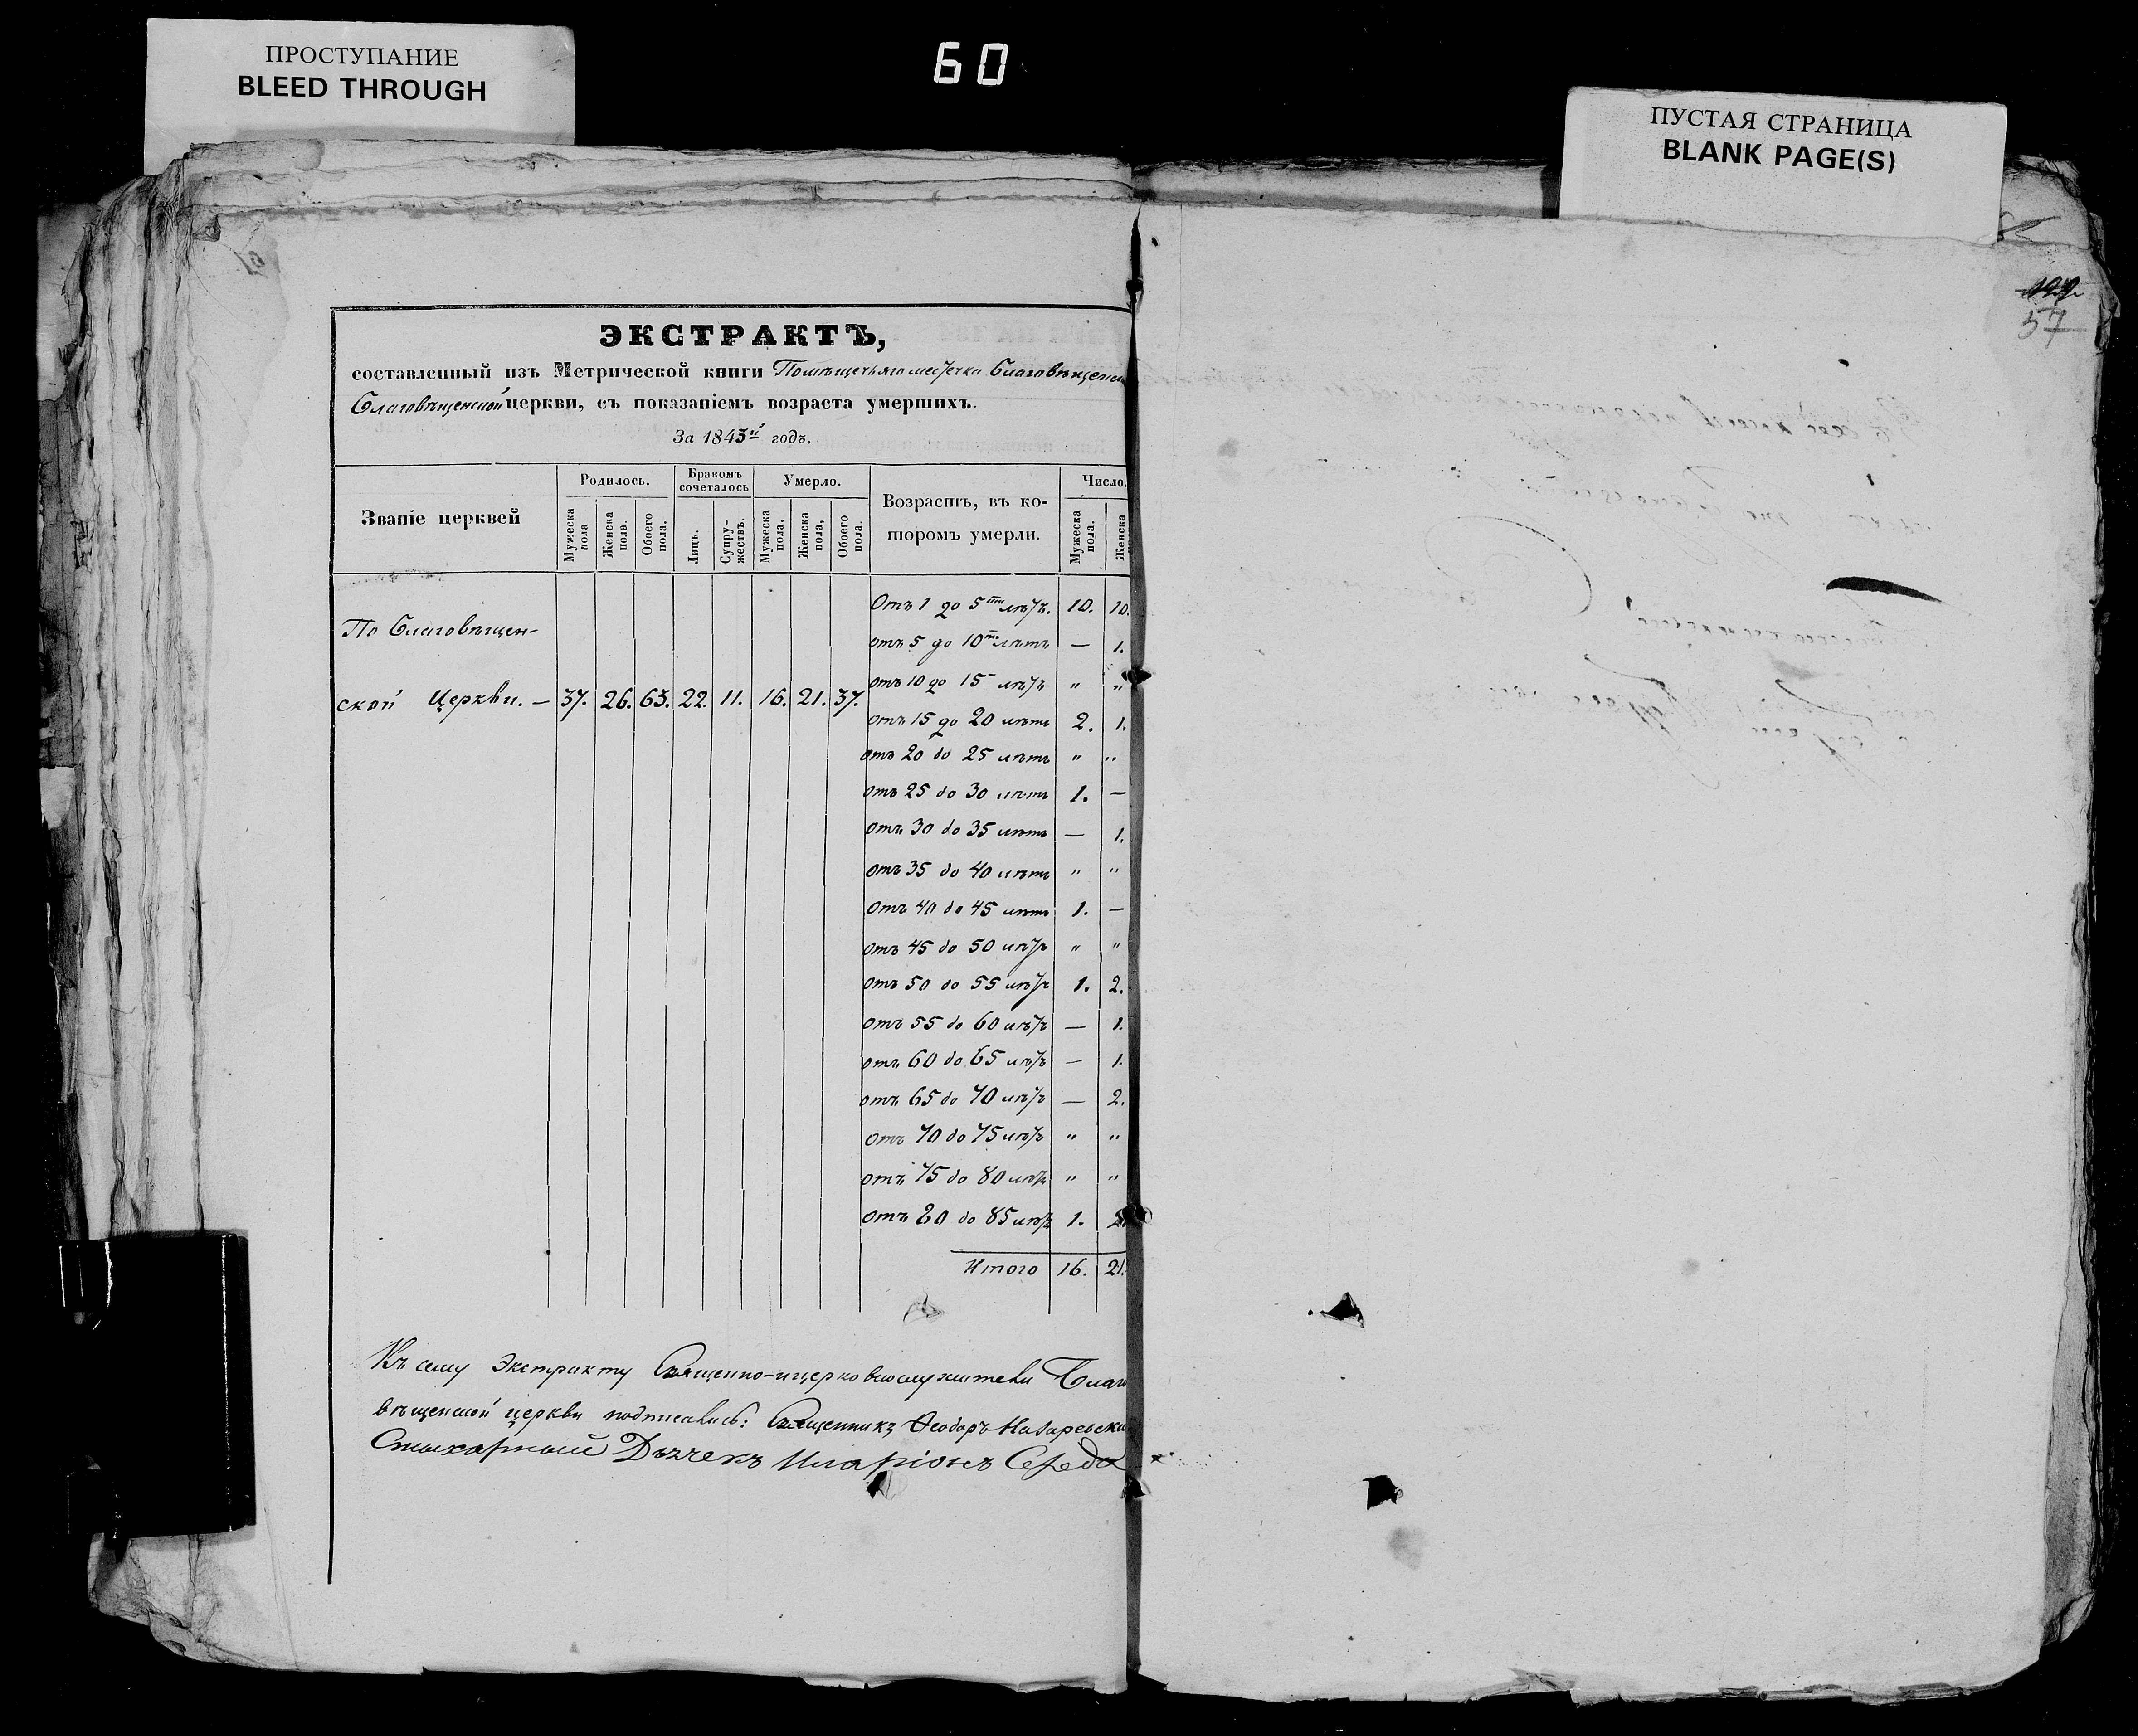 ПРОСТУПАНИЕ
BLEED THROUGH
60
ПУСТАЯ СТРАНИЦА
BLANK PAGE(S)
57
ЭКСТРАКТЪ,
составленный изъ Метрической книги Помѣщичьяго местечка Благовѣщенс
Благовѣщенской церкви, съ показаніемъ возраста умершихъ.
За 1843й годъ.
Званіе церквей
Родилось.
Бракомъ сочеталось
Умерло.
Возрастъ, въ ко-
торомъ умерли.
Число.
Мужеска пола
Женска пола.
Обоего пола.
Лицъ.
Супру-жествъ.
Мужеска пола.
Женска пола,
Обоего пола.
Мужеска пола.
Женска
По Благовѣщен-
ской Церкви. — 37. 26. 63. 22. 11. 16. 21. 37.
Отъ 1 до 5ти лѣтъ. 10. 10.
отъ 5 до 10ти лѣтъ — 1.
отъ 10 до 15 лѣтъ " "
отъ 15 до 20 лѣтъ 2. 1.
отъ 20 до 25 лѣтъ " "
отъ 25 до 30 лѣтъ 1. —
отъ 30 до 35 лѣтъ — 1.
отъ 35 до 40 лѣтъ " "
отъ 40 до 45 лѣтъ 1. —
отъ 45 до 50 лѣтъ " "
отъ 50 до 55 лѣтъ 1. 2.
отъ 55 до 60 лѣтъ — 1.
отъ 60 до 65 лѣтъ — 1.
отъ 65 до 70 лѣтъ — 2.
отъ 70 до 75 лѣтъ " "
отъ 75 до 80 лѣтъ " "
отъ 80 до 85 лѣтъ 1. 2.
Итого 16. 21.
Къ сему Экстракту Священно-ицерковнослужители Благо
вѣщенской церкви подписались: Священникъ Ѳеодоръ Назаревски
Стихарный Дьячекъ Иларіонъ Середа